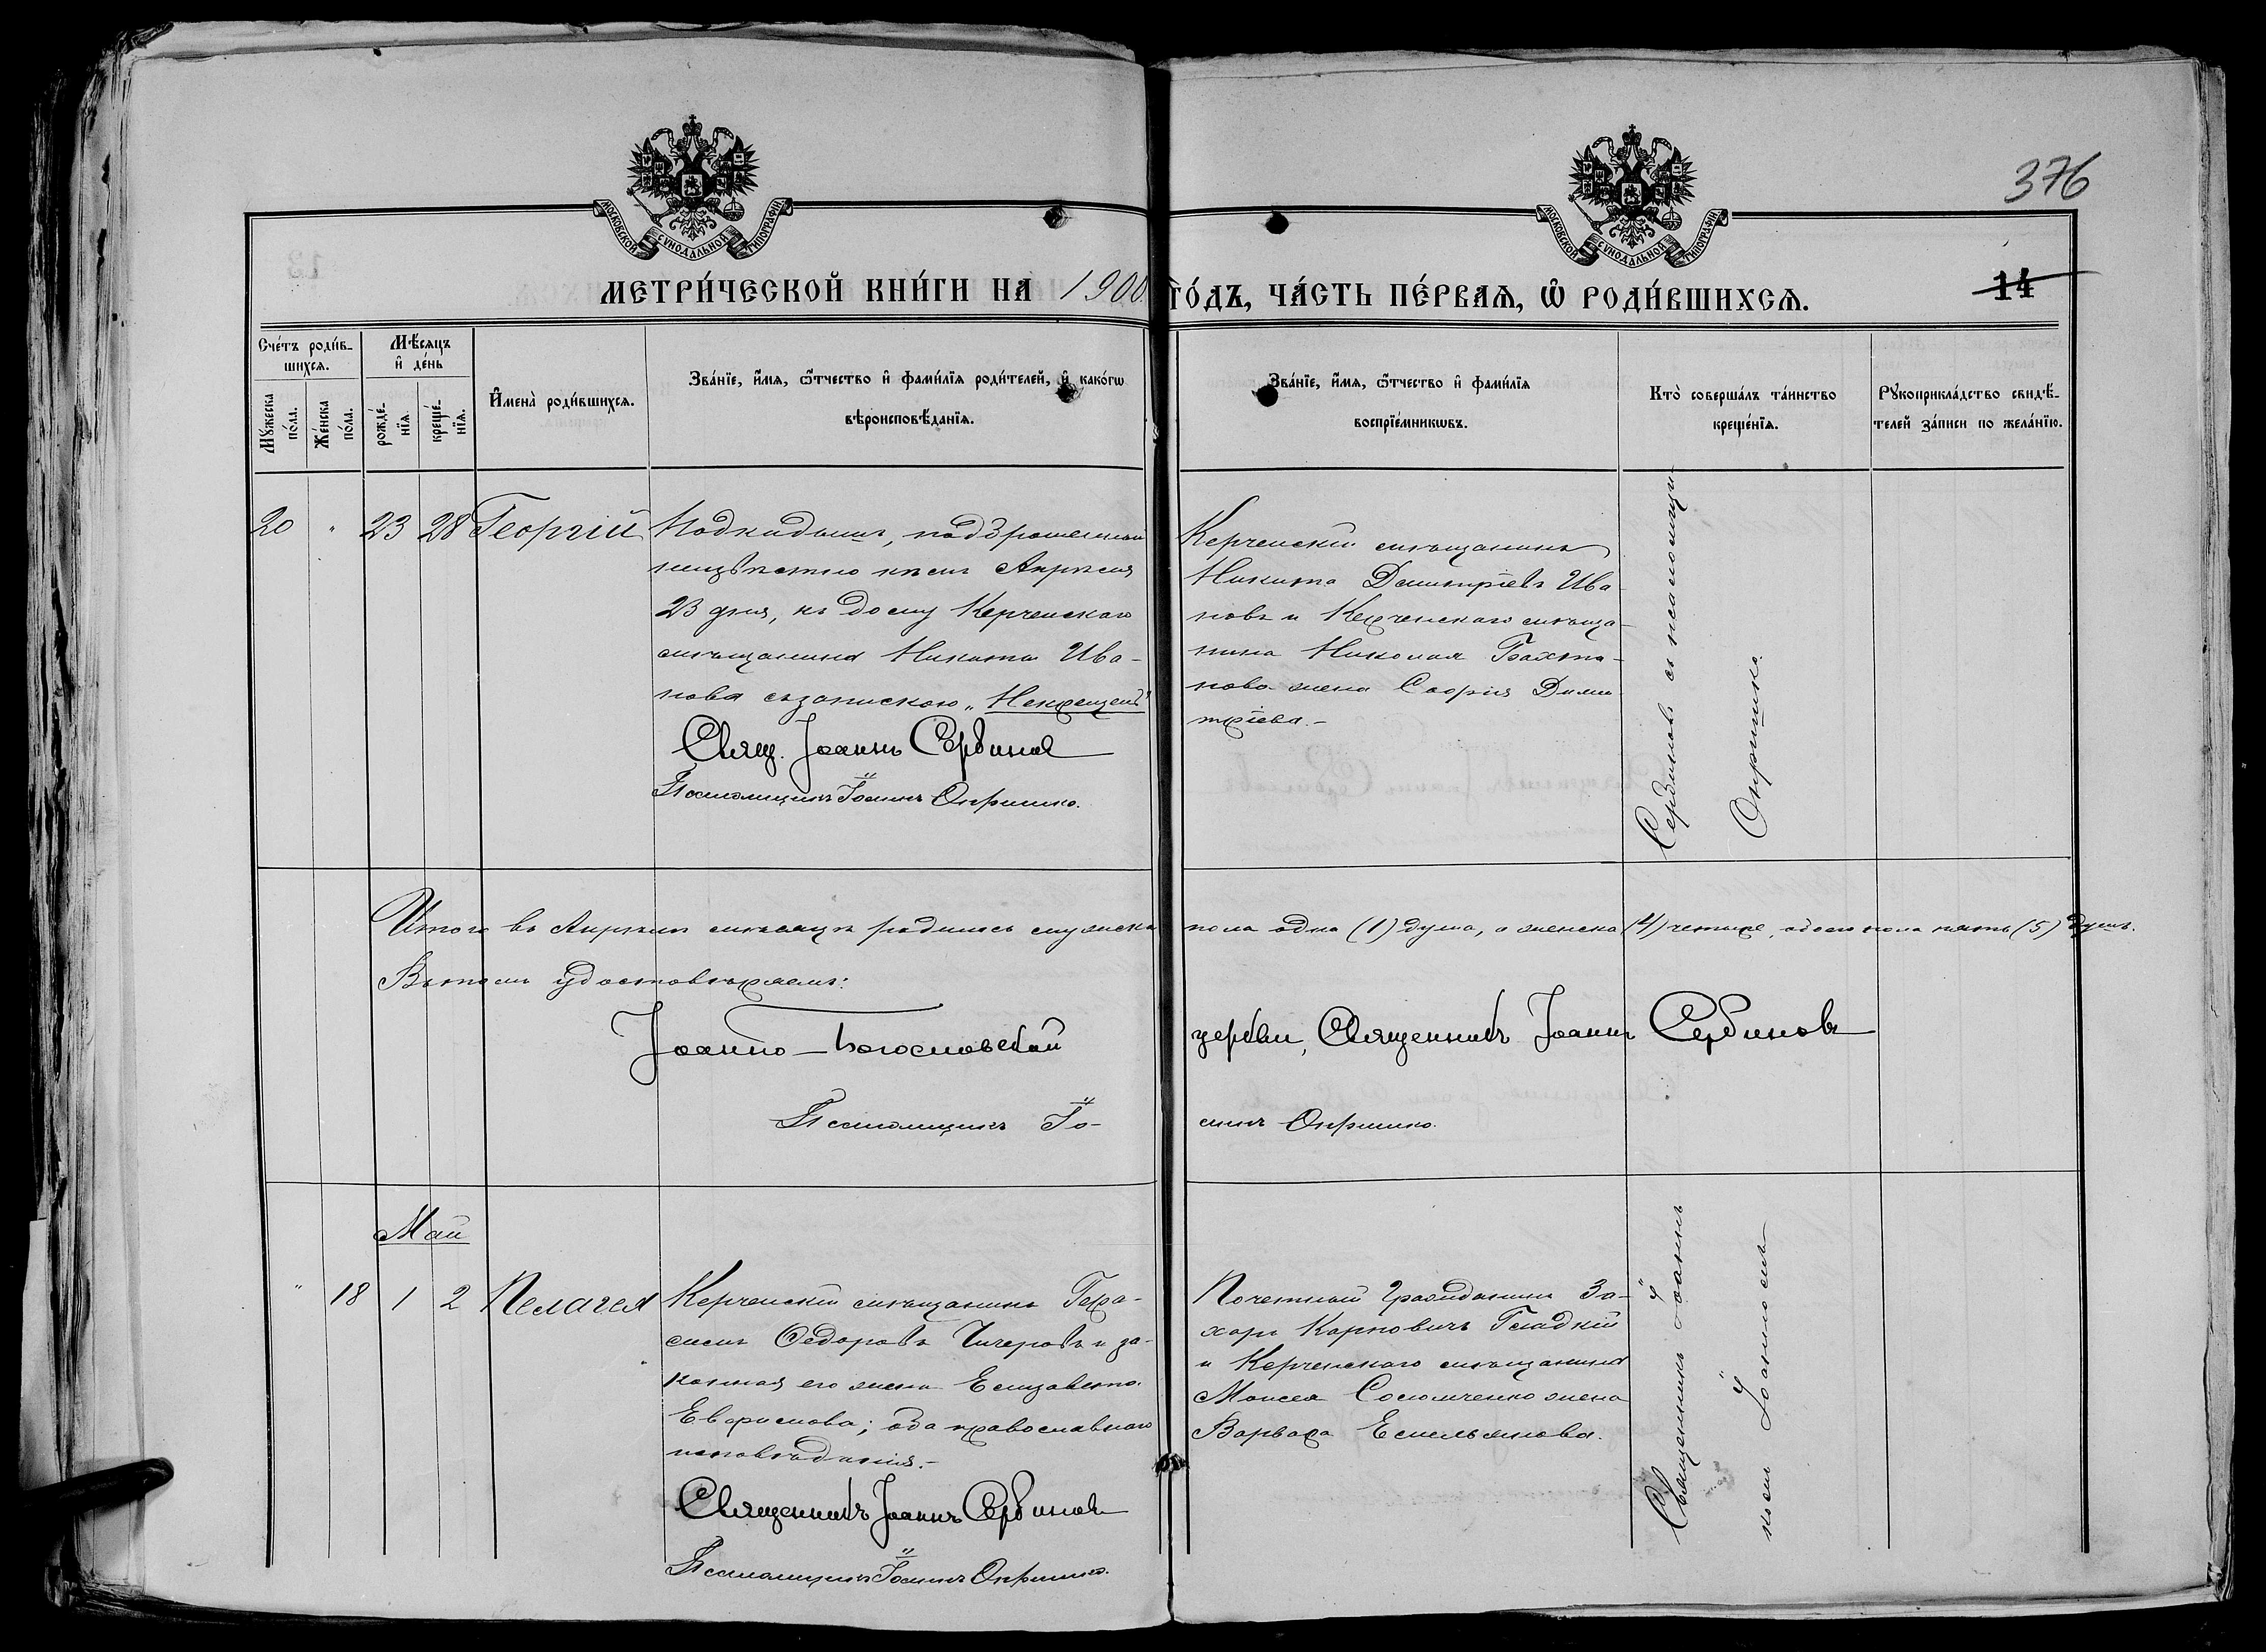 376
МОСКОВСКОЙ СУНОДАЛЬНОЙ ТИПОГРАФІИ
МОСКОВСКОЙ СУНОДАЛЬНОЙ ТИПОГРАФІИ
МЕТРИ́ЧЕСКОЙ КНИ́ГИ НА 1900 ГО́ДЪ, ЧА́СТЬ ПЕ́РВАѦ, Ѡ҆ РОДИ́ВШИХСѦ.
14
Сче́тъ роди́в-
шихсѧ.
Мꙋ́жеска по́ла.
Же́нска по́ла.
Мѣ́сѧцъ
и҆ де́нь
рожде́-
нїѧ.
креще́-
нїѧ.
И҆мена̀ роди́вшихсѧ.
Зва́нїе, и҆́мѧ, ѻ҆́тчество и҆ фами́лїѧ роди́телей, и҆ како́гѡ
вѣроисповѣ́данїѧ.
Зва́нїе, и҆́мѧ, ѻ҆́тчество и҆ фами́лїѧ
воспрїе́мникѡвъ.
Кто̀ соверша́лъ та́инство
креще́нїѧ.
Рꙋкоприкла́дство свидѣ́-
телей за́писи по жела́нїю.
20 " 23 28 Георгій
Подкидышъ, подброшенный
неизвѣстно кѣмъ Апрѣля
23 дня, къ дому Керченскаго
мѣщанина Никиты Ива-
нова съ запискою „Некрещенъ"
Свящ. Іоаннъ Сербиновъ
Псаломщикъ Іоаннъ Опришко.
Керченскій мѣщанинъ
Никита Димитріевъ Ива-
новъ и Керченскаго мѣща-
нина Николая
жена Софія Дими-
тріева.-
Сербиновъ съ псаломщи-
Опришко.
Итого въ Апрѣлѣ мѣсяцѣ родилось мужска пола одна (1) душа, а женска (4) четыре, обоего пола пять (5) душъ.
Въ томъ удостовѣряемъ:
Іоанно-Богословской церкви, Священникъ Іоаннъ Сербиновъ
Псаломщикъ Іо-аннъ Опришко.
Май
" 18 1 2 Пелагея
Керченскій мѣщанинъ Гера-
симъ Ѳедоровъ Чичеровъ и за-
конная его жена Елизавета
оба православнаго
исповѣданія.-
Священникъ Іоаннъ Сербиновъ
Псаломщикъ Іоаннъ Опришко.
Почетный Гражданинъ За-
харъ Карповичъ Гладкій
и Керченскаго мѣщанина
Моисея Соломченко жена
Варвара Емельянова.
Священникъ Іоаннъ